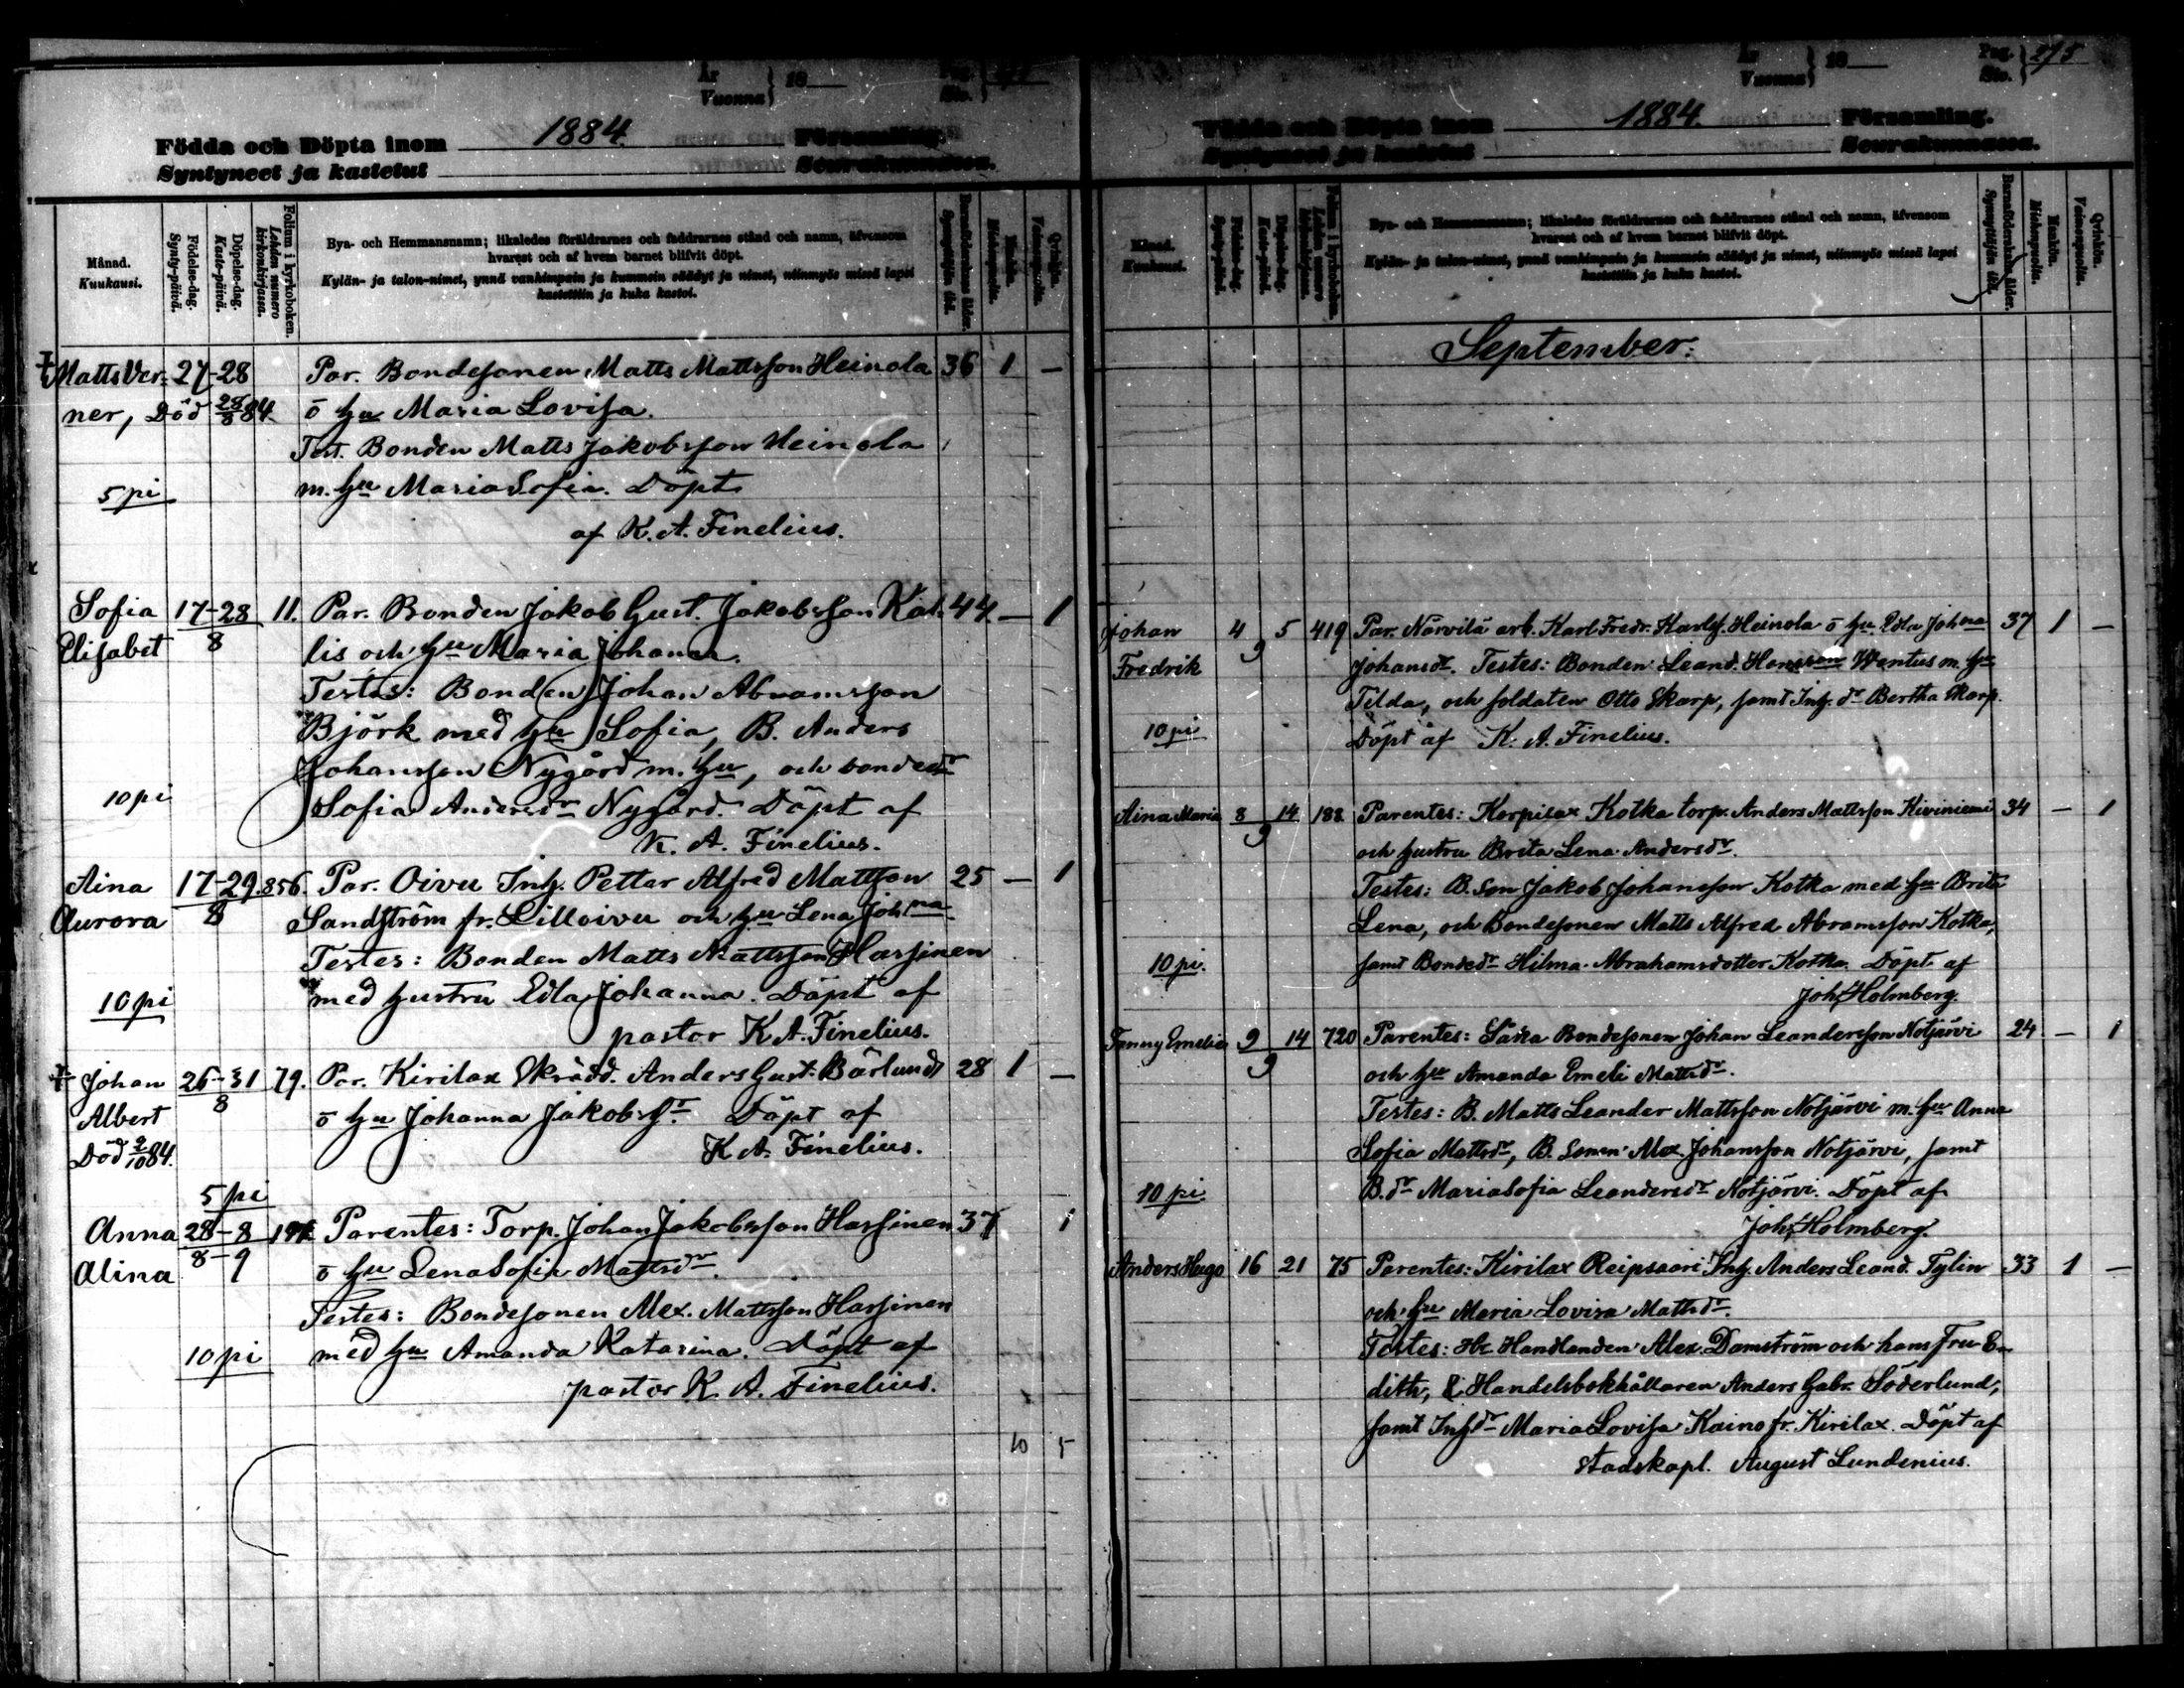 År
Vuonna } 18
Pag.
Siv.
Födda och Döpta inom 1884. Församling.
Syntyneet ja kastetut Seurakunnassa.
Månad.
Kuukausi.
Födelse-dag.
Synty-päivä.
Döpelse-dag.
Kaste-päivä.
Folium i kyrkoboken.
Lehden numero kirkonkirjassa.
Bya- och Hemmansnamn; likaledes föräldrarnes och faddrarnes stånd och namn, äfvensom
hvarest och af hvem barnet blifvit döpt.
Kylän- ja talon-nimet, ynnä vanhimpain ja kummein säädyt ja nimet, niinmyös missä lapsi
kastettiin ja kuka kastoi.
Barnföderskans ålder.
Synnyttäjän ikä.
Mankön.
Miehenpuolia.
Qvinkön.
Vaimonpuolia.
Matts Ver- 27-28 Par. Bondesonen Matts Mattsson Heinola 36 1 —
ner, Död 28/8 84. o hu Maria Lovisa.
Test. Bonden Matts Jakobsson Heinola
5 pi m. hu Maria Sofia. Döpt
af K. A. Finelius.
Sofia 17-28 11. Par. Bonden Jakob Gust. Jakobsson Kal- 44. — 1
Elisabet 8 lis och hu Maria Johanna.
Testes: Bonden Johan Abramsson
Björk med hu Sofia, B. Anders
Johansson Nygård m. hu, och bondedr
10 pi Sofia Andersdr Nygård. Döpt af
K. A. Finelius.
Aina 17-29. 856. Par. Oivu Inh. Petter Alfred Mattson 25 — 1
Aurora 8 Sandström fr. Lilloivu och hu Lena Johna
Testes: Bonden Matts Mattsson Hassinen
10 pi med hustru Edla Johanna. Döpt af
pastor K A. Finelius.
Johan 26-31 79. Par. Kirilax Skrädd. Anders Gust. Bärlund 28 1 —
Albert 8 o hu Johanna Jakobsdr Döpt af
Död 2/10 84. K A. Finelius.
5 pi
Anna 28-8 Parentes: Torp. Johan Jakobsson Hassinen 37 1
Alina 8-9 o hu Lena Sofia Mattsdr.
Testes: Bondesonen Alex. Mattsson Hassinen
10 pi med hu Amanda Katarina. Döpt af
pastor K. A. Finelius.
10 5
År
Vuonna } 18
Pag.
Siv. } 275
Födda och Döpta inom 1884. Församling.
Syntyneet ja kastetut Seurakunnassa.
Månad.
Kuukausi.
Födelse-dag.
Synty-päivä.
Döpelse-dag.
Kaste-päivä.
Folium i kyrkoboken.
Lehden numero kirkonkirjassa.
Bya- och Hemmansnamn; likaledes föräldrarnes och faddrarnes stånd och namn, äfvensom
hvarest och af hvem barnet blifvit döpt.
Kylän- ja talon-nimet, ynnä vanhimpain ja kummein säädyt ja nimet, niinmyös missä lapsi
kastettiin ja kuka kastoi.
Barnföderskans ålder.
Synnyttäjän ikä.
Mankön.
Miehenpuolia.
Qvinkön.
Vaimonpuolia.
September.
Johan 4 5 419 Par. Närvilä arb. Karl Fredr. Karlss. Heinola o hu Edla Johna 37 1 —
Fredrik 9 Johansdr. Testes: Bonden Leand. Hansson Wentus m. hu
Tilda, och soldaten Otto Skarp, samt Inh. dr Bertha Skarp.
10 pi Döpt af K. A. Finelius.
Aina Maria 8 14 188 Parentes: Korpilax Kotka torp. Anders Mattsson Kiviniemi 34 — 1
9 och hustru Brita Lena Andersdr.
Testes: B. Son Jakob Johansson Kotka med hu Brita
Lena, och Bondesonen Matts Alfred Abramsson Kotka,
10 pi. samt Bondedr Hilma Abrahamsdotter Kotka. Döpt af
Joh. Holmberg.
Fanny Emelie 9 14 720 Parentes: Såka Bondesonen Johan Leandersson Notjärvi 24 — 1
9 och hu Amanda Emeli Mattsdr.
Testes: B. Matts Leander Mattsson Notjärvi m. hu Anna
Sofia Mattsdr, B. Sonen Alex. Johansson Notjärvi, samt
10 pi. B. dr Maria Sofia Leandersdr Notjärvi. Döpt af
Joh. Holmberg.
Anders Hugo 16 21 75 Parentes: Kirilax Reipsaari Inh. Anders Leand. Tylin 33 1 —
och hu Maria Lovisa Mattsdr.
Testes: Hr Handlanden Alex. Damström och hans Fru E-
dith, Handelsbokhållaren Anders Gabr. Söderlund,
samt Inh. dr Maria Lovisa Kaino fr. Kirilax. Döpt af
Stadskapl. August Lundenius.